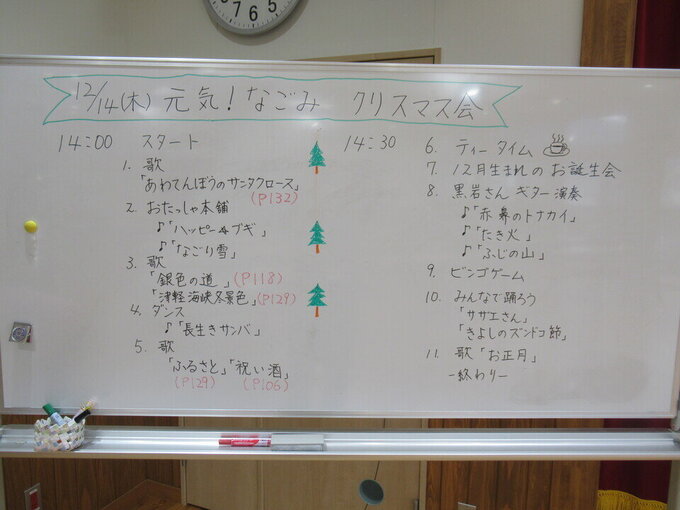 12/14(木) 元気!なごみ クリスマス会
14:00 スタート
1. 歌
「あわてんぼうのサンタクロース」
(P132)
2. おたっしゃ本舗
♪「ハッピー☆ブギ」
♪「なごり雪」
3. 歌
「銀色の道」(P118)
「津軽海峡冬景色」(P129)
4. ダンス
♪「長生きサンバ」
5. 歌
「ふるさと」「祝い酒」
(P129) (P106)
14:30 6. ティータイム
7. 12月生まれのお誕生会
8. 黒岩さん ギター演奏
♪「赤鼻のトナカイ」
♪「たき火」
♪「ふじの山」
9. ビンゴゲーム
10. みんなで踊ろう
「サザエさん」
「きよしのズンドコ節」
11. 歌「お正月」
-終わり-